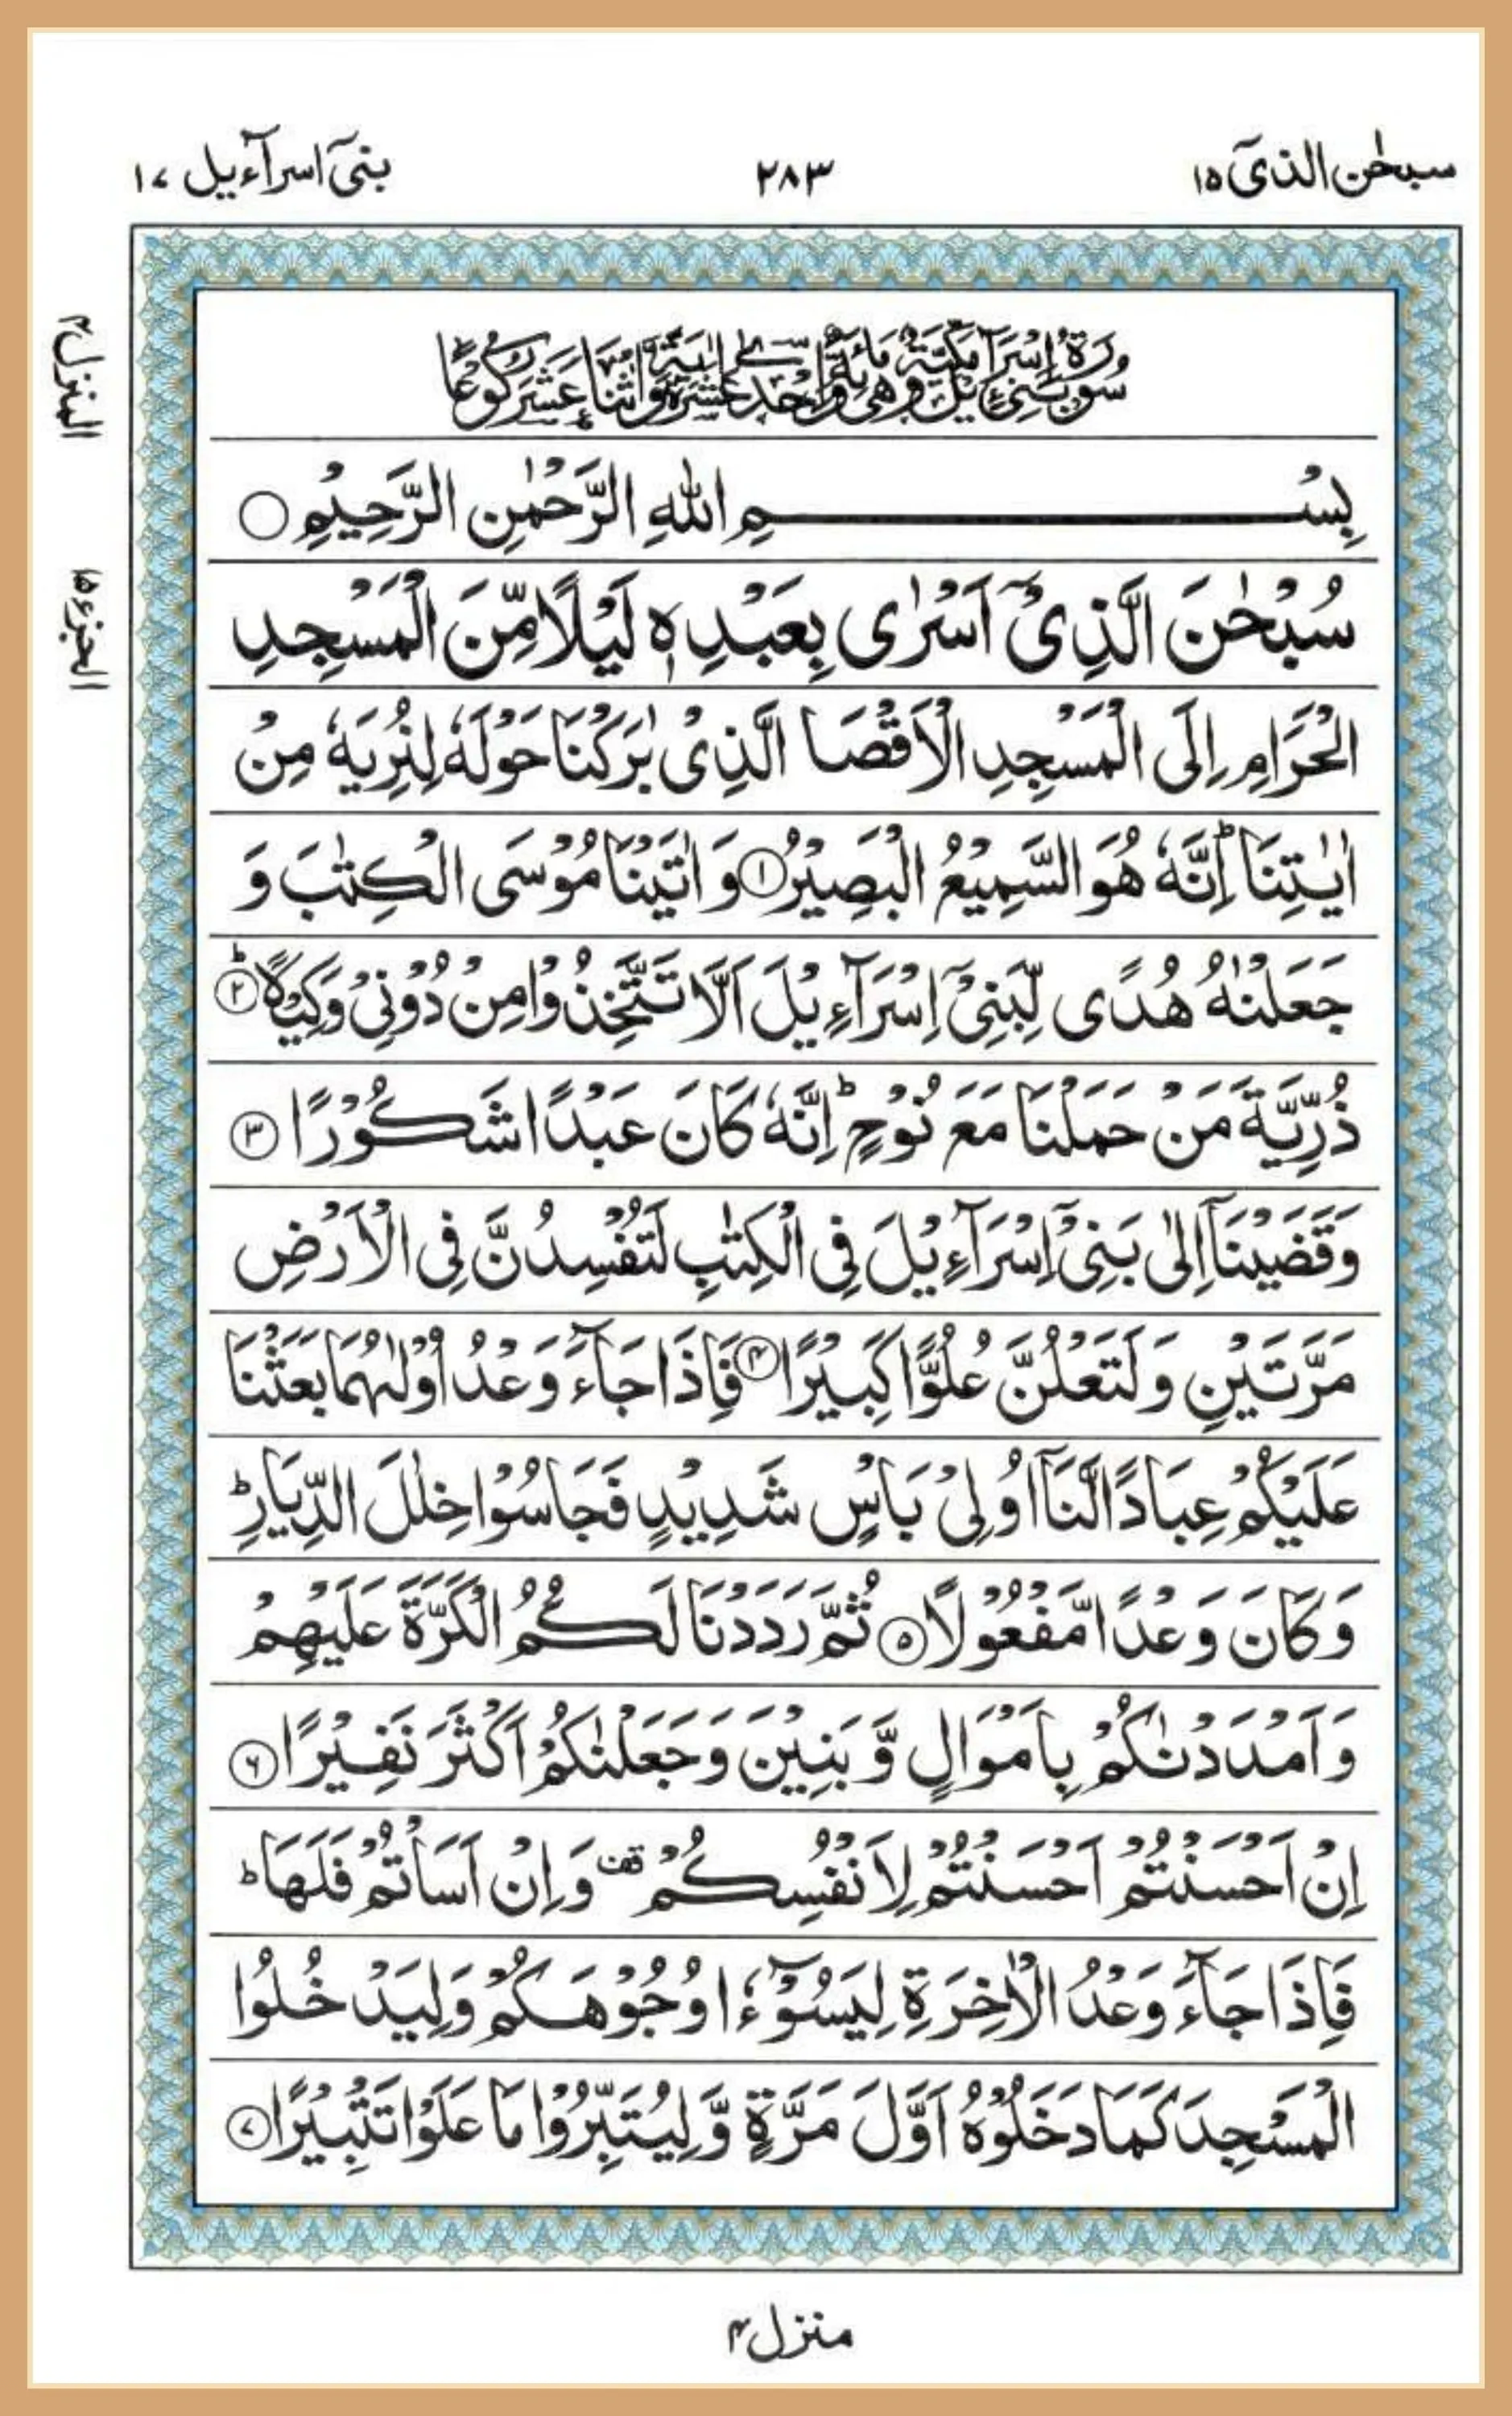 سبحٰن الذیٓ ۱۵
۲۸۳
بنیٓ اسرآءیل ۱۷
المنزل ۴
سُوْرَةُ بَنِیْٓ اِسْرَآءِیْلَ مَكِّیَّةٌ وَّهِیَ مِائَةٌ وَّاِحْدٰی عَشْرَةَ اٰیَةً وَّاثْنَا عَشَرَ رُكُوْعًا
بِسْمِ اللّٰهِ الرَّحْمٰنِ الرَّحِیْمِ
الجزء ۱۵
سُبْحٰنَ الَّذِیْۤ اَسْرٰی بِعَبْدِهٖ لَیْلًا مِّنَ الْمَسْجِدِ
الْحَرَامِ اِلَی الْمَسْجِدِ الْاَقْصَا الَّذِیْ بٰرَكْنَا حَوْلَهٗ لِنُرِیَهٗ مِنْ
اٰیٰتِنَا ؕ اِنَّهٗ هُوَ السَّمِیْعُ الْبَصِیْرُ ۱ وَ اٰتَیْنَا مُوْسَی الْكِتٰبَ وَ
جَعَلْنٰهُ هُدًی لِّبَنِیْۤ اِسْرَآءِیْلَ اَلَّا تَتَّخِذُوْا مِنْ دُوْنِیْ وَكِیْلًا ؕ ۲
ذُرِّیَّةَ مَنْ حَمَلْنَا مَعَ نُوْحٍ ؕ اِنَّهٗ كَانَ عَبْدًا شَكُوْرًا ۳
وَقَضَیْنَاۤ اِلٰی بَنِیْۤ اِسْرَآءِیْلَ فِی الْكِتٰبِ لَتُفْسِدُنَّ فِی الْاَرْضِ
مَرَّتَیْنِ وَ لَتَعْلُنَّ عُلُوًّا كَبِیْرًا ۴ فَاِذَا جَآءَ وَعْدُ اُوْلٰىهُمَا بَعَثْنَا
عَلَیْكُمْ عِبَادًا لَّنَاۤ اُولِیْ بَاْسٍ شَدِیْدٍ فَجَاسُوْا خِلٰلَ الدِّیَارِ ؕ
وَ كَانَ وَعْدًا مَّفْعُوْلًا ۵ ثُمَّ رَدَدْنَا لَكُمُ الْكَرَّةَ عَلَیْهِمْ
وَ اَمْدَدْنٰكُمْ بِاَمْوَالٍ وَّ بَنِیْنَ وَجَعَلْنٰكُمْ اَكْثَرَ نَفِیْرًا ۶
اِنْ اَحْسَنْتُمْ اَحْسَنْتُمْ لِاَنْفُسِكُمْ قف وَ اِنْ اَسَاْتُمْ فَلَهَا ؕ
فَاِذَا جَآءَ وَعْدُ الْاٰخِرَةِ لِیَسُوْٓءٗا وُجُوْهَكُمْ وَلِیَدْخُلُوا
الْمَسْجِدَ كَمَا دَخَلُوْهُ اَوَّلَ مَرَّةٍ وَّ لِیُتَبِّرُوْا مَا عَلَوْا تَتْبِیْرًا ۷
منزل ۴